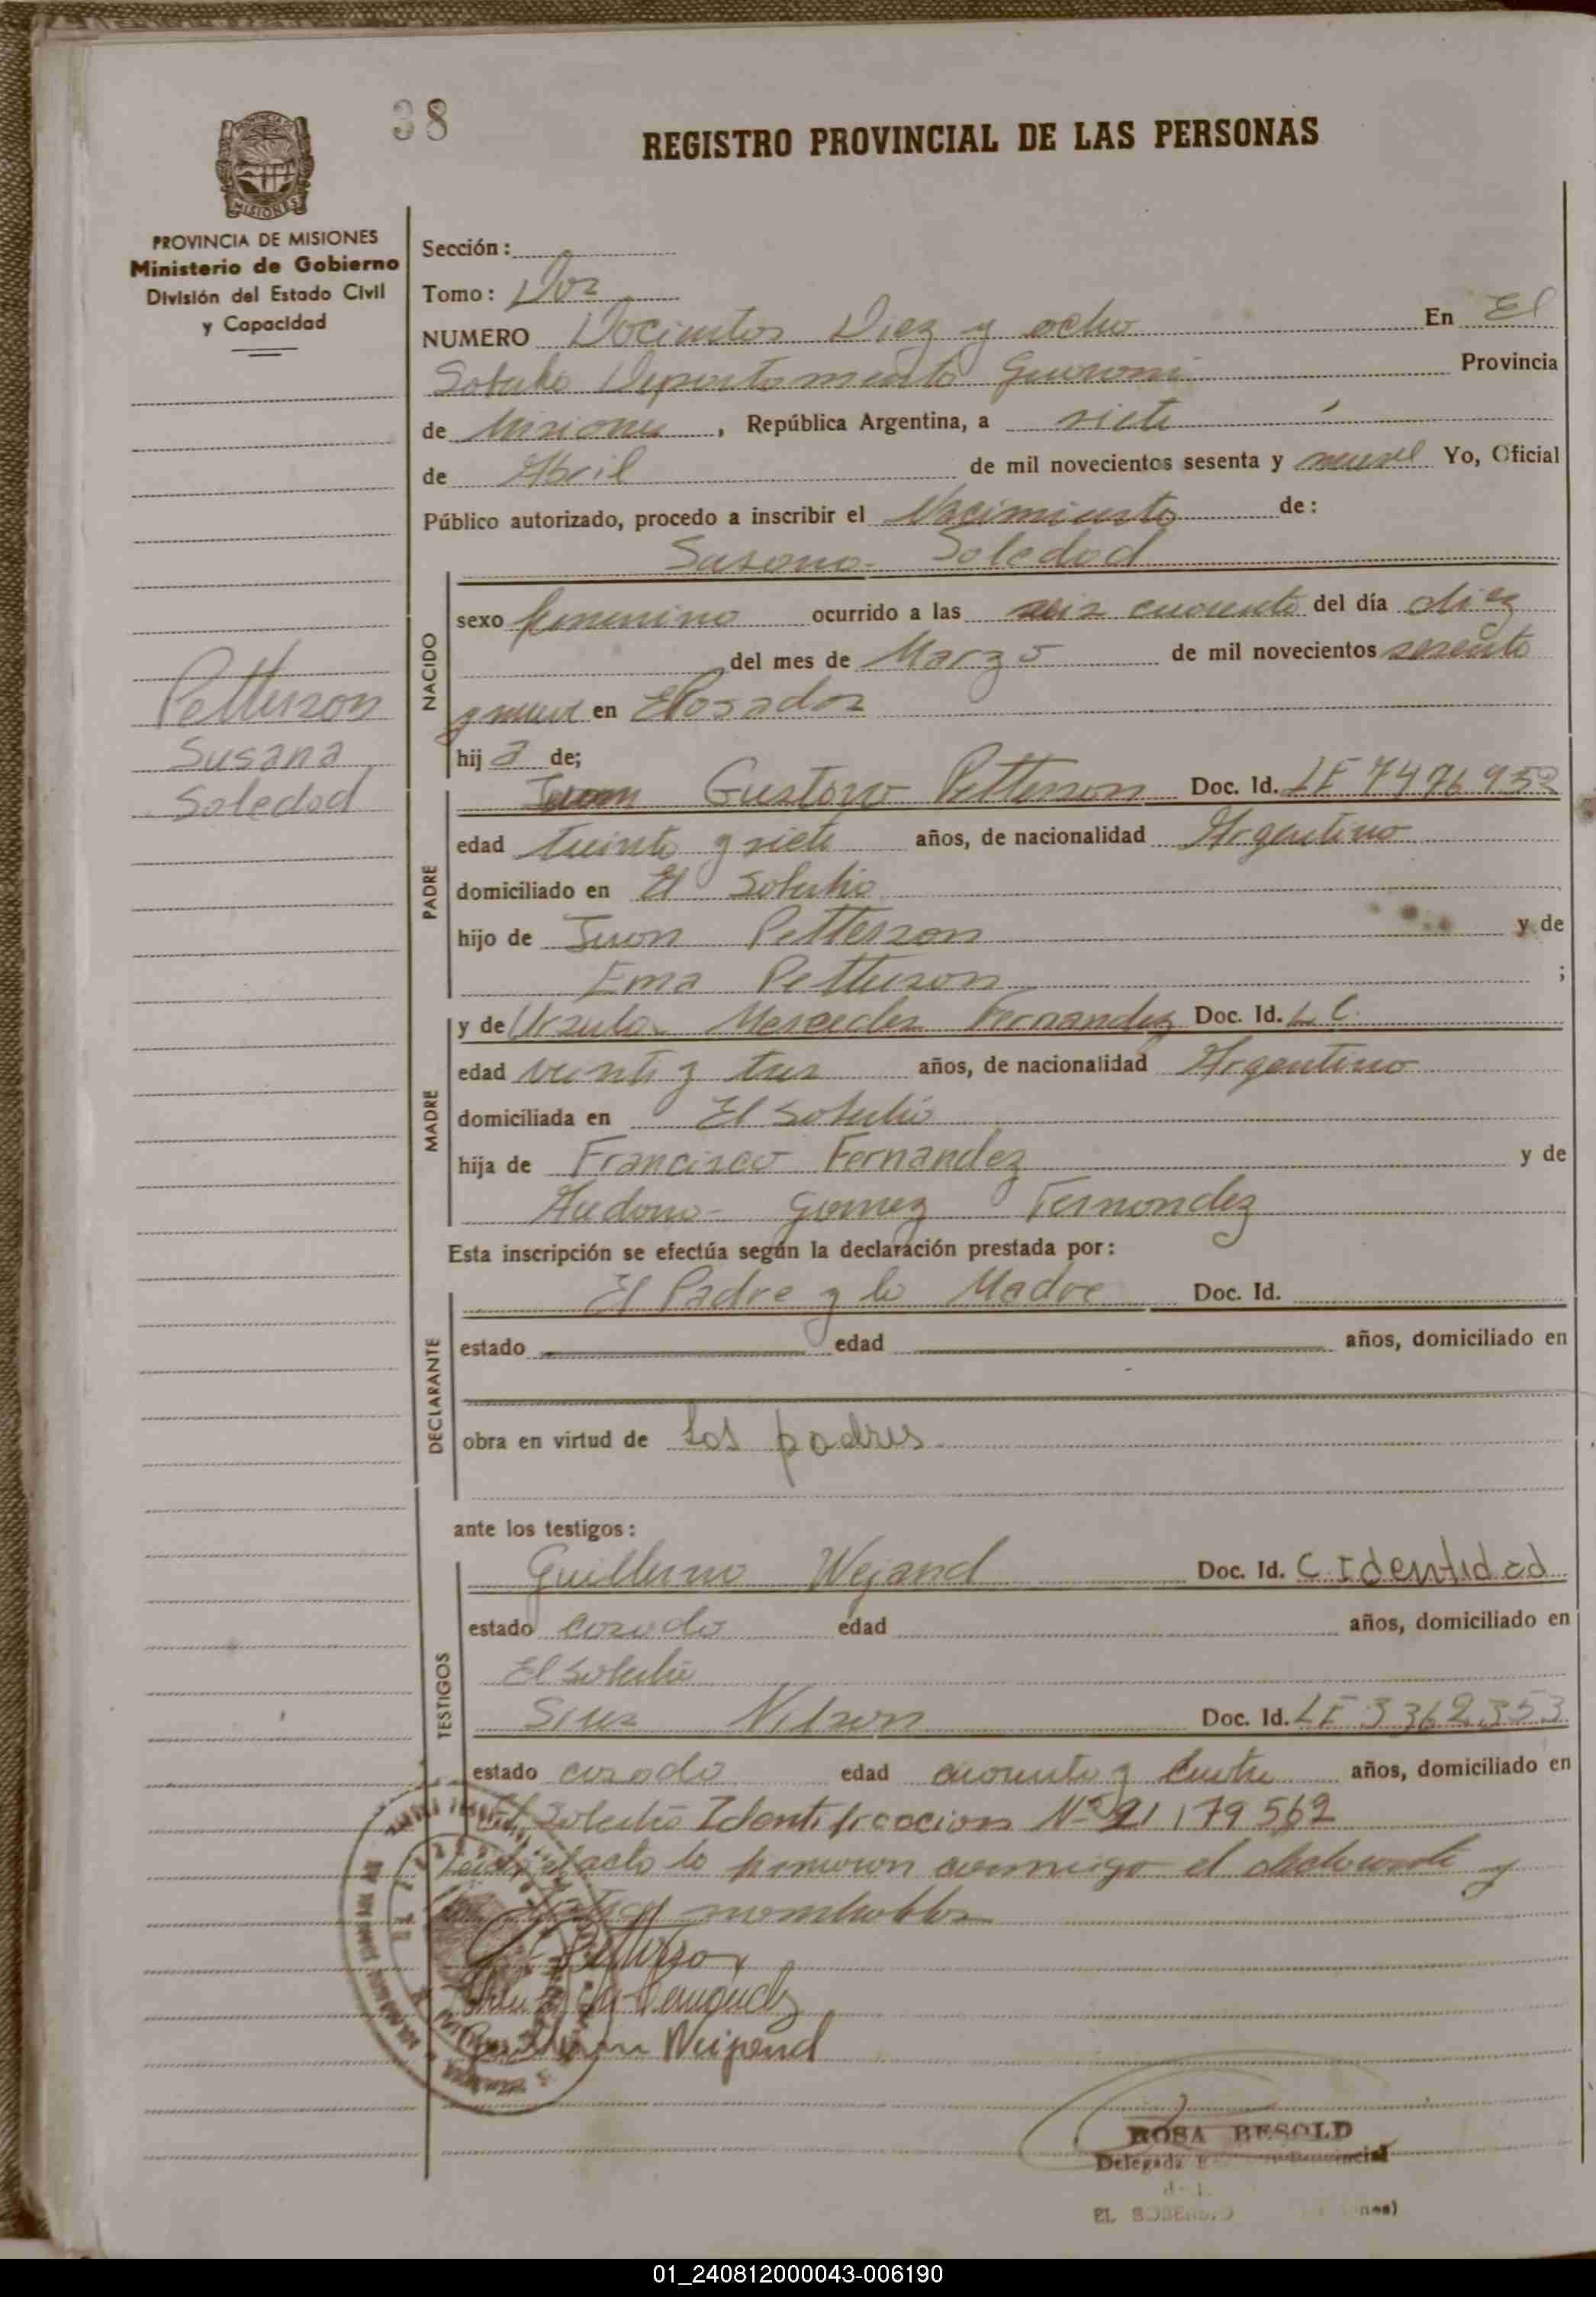 38
REGISTRO PROVINCIAL DE LAS PERSONAS
PROVINCIA DE
MISIONES
PROVINCIA DE MISIONES
Ministerio de Gobierno
División del Estado Civil
y Capacidad
Sección:
Tomo: Dos
NUMERO Docientos Diez y ocho En El
Soberbio Departamento Guarani Provincia
de Misiones, República Argentina, a siete
de Abril de mil novecientos sesenta y nueve Yo, Oficial
Público autorizado, procedo a inscribir el Nacimiento de:
Susana Soledad
NACIDO
sexo femenino ocurrido a las seis cuarenta del día diez
del mes de Marzo de mil novecientos sesenta
y nueve en Posadas
hij a de;
Petterson
Susana
Soledad
PADRE
Juan Gustavo Petterson Doc. Id. LE 7476952
edad treinta y siete años, de nacionalidad Argentino
domiciliado en El Soberbio
hijo de Juan Petterson y de
Ema Petterson ;
MADRE
y de Ursula Mercedes Fernandez Doc. Id. L C.
edad veinti y tres años, de nacionalidad Argentino
domiciliada en El Soberbio
hija de Francisco Fernandez y de
Gomez Fernandez
Esta inscripción se efectúa según la declaración prestada por:
DECLARANTE
El Padre y la Madre Doc. Id.
estado edad años, domiciliado en
obra en virtud de Los padres
ante los testigos:
TESTIGOS
Guillermo Wejand Doc. Id. C. Identidad
estado casado edad años, domiciliado en
El Soberbio
Nilson Doc. Id. LE 3362.353
estado casado edad cuarenta y años, domiciliado en
El Soberbio Identificacion Nº 21179562
Leida el acta la firmaron conmigo el declarante y
Petterson
Fernandez
Guillermo Weipend
ROSA BESOLD
Delegada
EL SOBERBIO
01_240812000043-006190